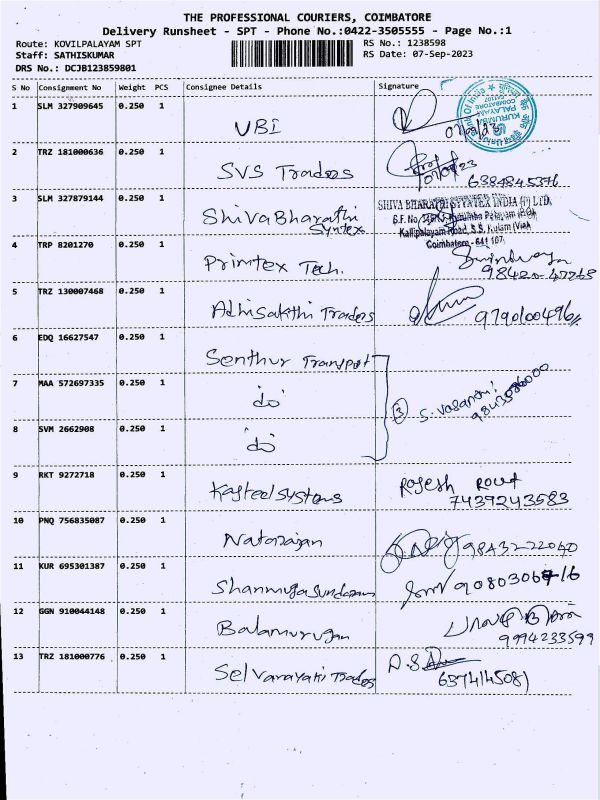 THE PROFESSIONAL COURIERS, COIMBATORE
Delivery Runsheet - SPT - Phone No.:0422-3505555 - Page No.:1
Route: KOVILPALAYAM SPT RS No.: 1238598
Staff: SATHISKUMAR RS Date: 07-Sep-2023
DRS No.: DCJB123859801
S No Consignment No Weight PCS Consignee Details Signature
1 SLM 327909645 0.250 1 UBI
2 TRZ 181000636 0.250 1 SVS Traders
6384845376
3 SLM 327879144 0.250 1 Shiva Bharathi Syntex
SHIVA BHARATHI SYNTEX INDIA (P) LTD,
Coimbatore - 641 107.
4 TRP 8201270 0.250 1 Primtex Tech.
98420-47268
5 TRZ 130007468 0.250 1 Adhisakthi Traders
9790100496
6 EDQ 16627547 0.250 1 Senthur Transport
7 MAA 572697335 0.250 1 do
3 S. Vasanthi
8 SVM 2662908 0.250 1 do
9 RKT 9272718 0.250 1 Kasteel Systems Rajesh Rout
7439243583
10 PNQ 756835087 0.250 1 Natarajan 9843222040
11 KUR 695301387 0.250 1 Shanmugasundaram
12 GGN 910044148 0.250 1 Balamurugan
9994233599
13 TRZ 181000776 0.250 1 Selvanayaki Traders
6374145081